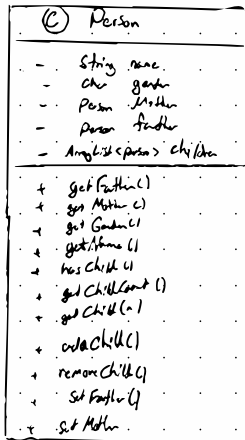 C Person
- String name
- char gender
- Person Mother
- person father
- ArrayList<person> children
+ getFather()
+ get Mother()
+ get Gender()
+ getName()
+ has Child()
+ get ChildCount()
+ get Child(n)
+ add Child()
+ remove Child()
+ set Father()
+ Set Mother